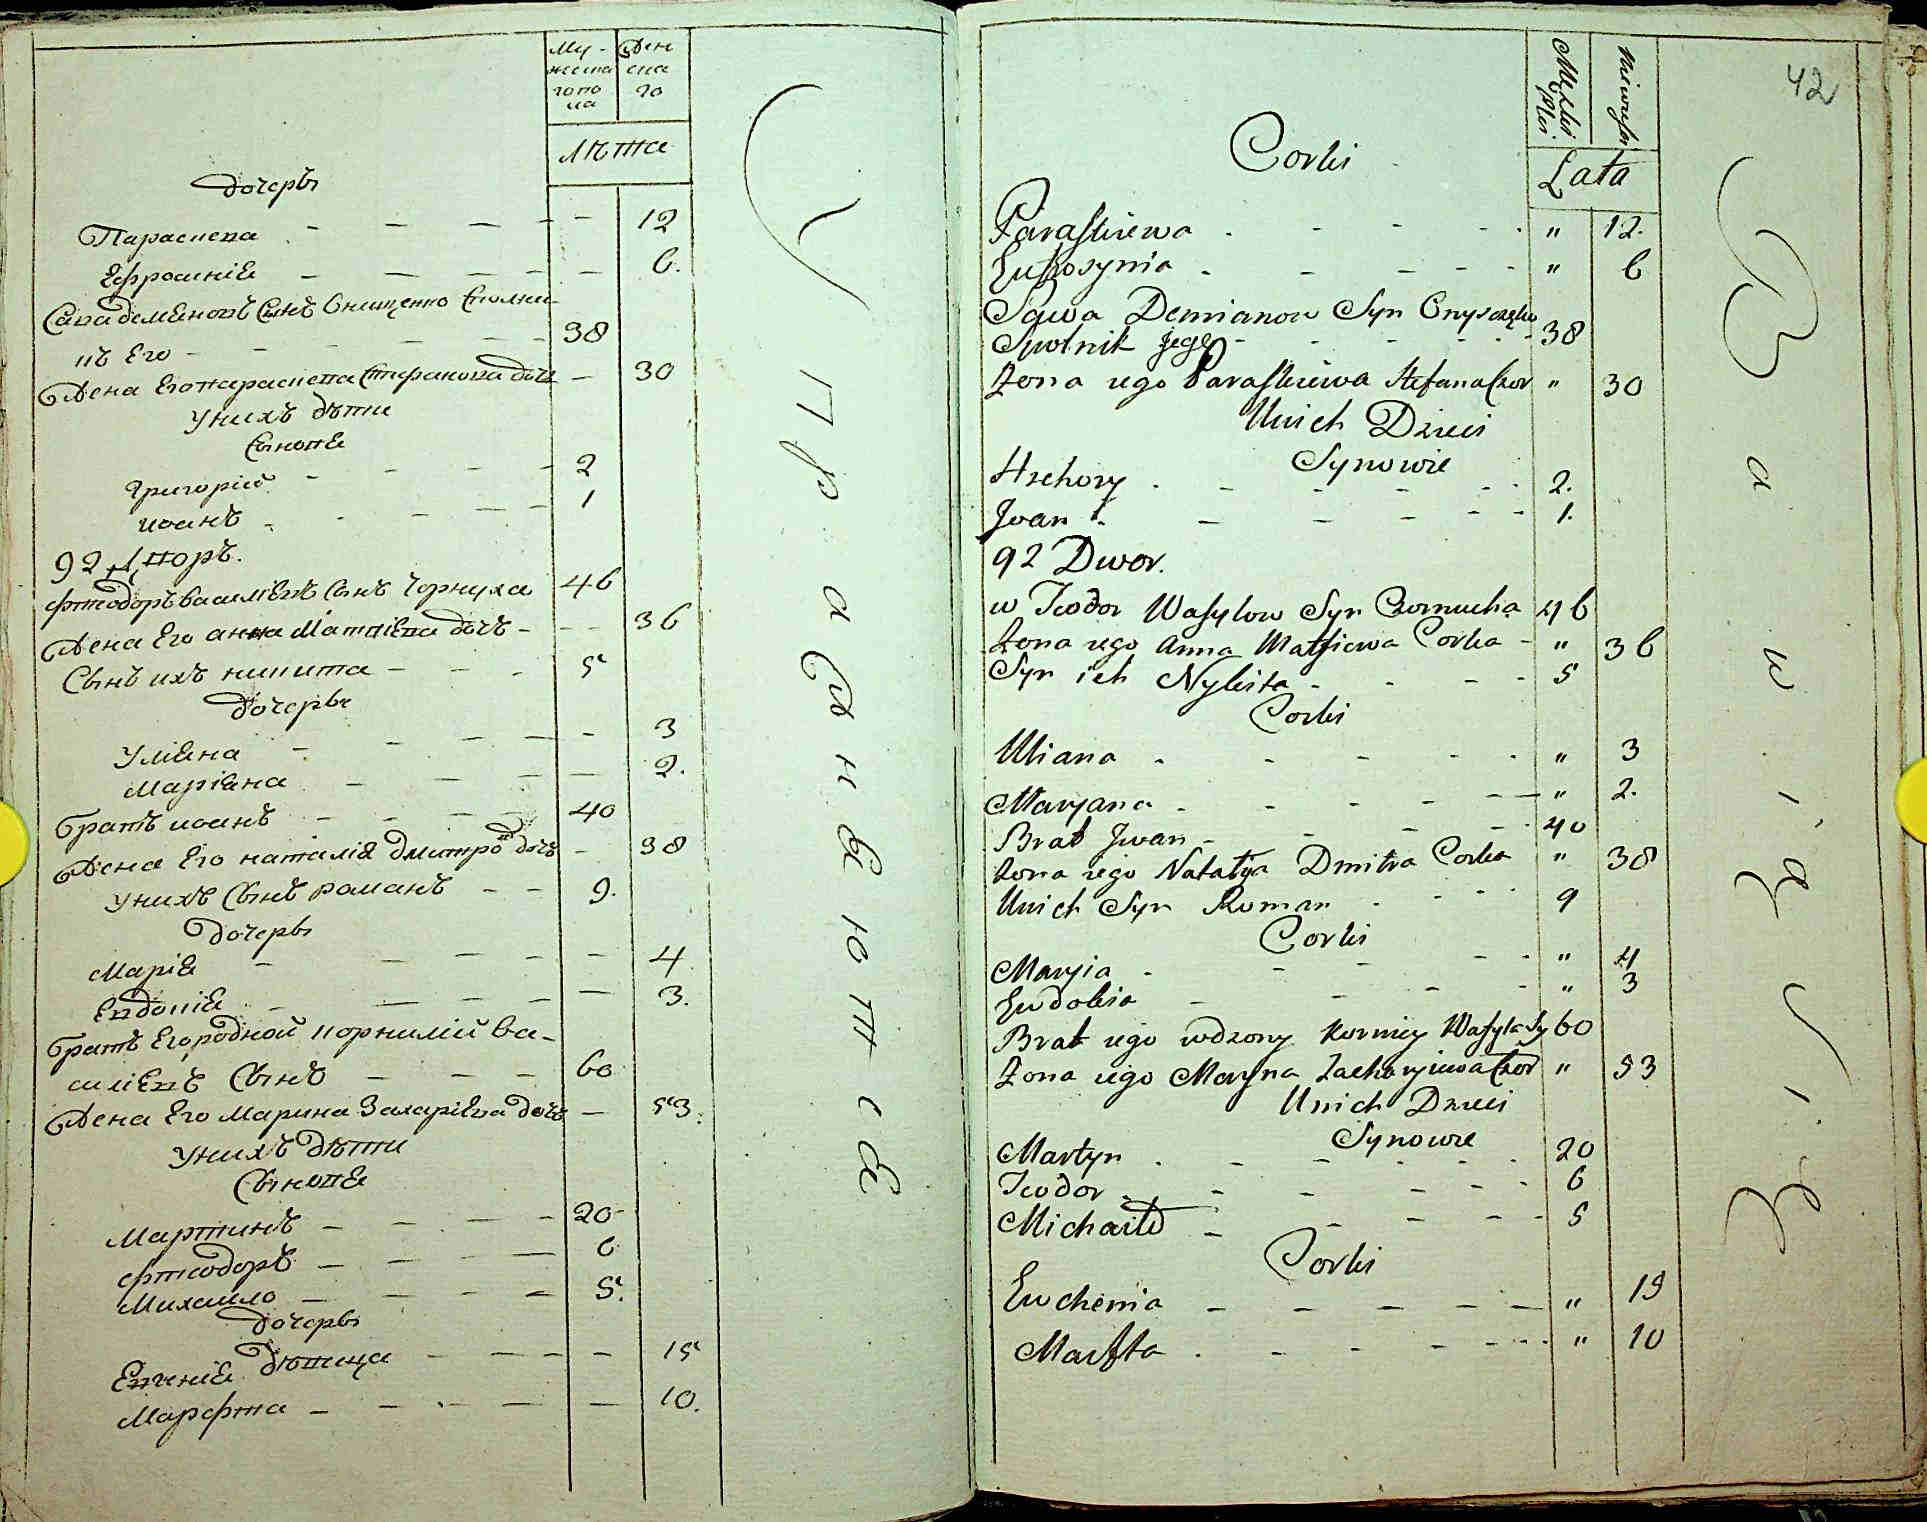 Му-
жеска
гопо
ла
Жен
ска
го
Лѣта
дочерѣ
Параскева - - - - - 12
Ефросиніѧ - - - - - 6.
Сава деміѧновъ Сынъ Онищенко Сполни-
къ Его - - - - - 38
Жена Его параскева Стефанова дочь - 30
У нихъ дѣти
Сыновѧ
Григорій - - - - 2
иоанъ - - - - 1
92 Дворъ.
Ѳеодоръ василіевъ Сынъ Чорнуха 46
Жена Его анна Матвіева дочь - - 36
Сынъ ихъ никита - - - 5
дочерѣ
Уліѧна - - - - - 3
Маріѧна - - - - 2.
братъ иоанъ - - - - 40
Жена Его наталіѧ дмитрова дочь - 38
У нихъ Сынъ романъ - - 9.
дочерѣ
Маріѧ - - - - - 4.
Евдокіѧ - - - - - 3.
братъ Его родной корнилій ва-
силіевъ Сынъ - - - 60
Жена Его Марина Захаріева дочь - 53.
У нихъ дѣти
Сыновѧ
Мартинъ - - - - 20
Ѳеодоръ - - - - 6
Михаило - - - - 5.
дочерѣ
Евгеніѧ дѣвица - - - - 15
Марѳта - - - - - 10.
Управляются
42
Męzkiei
Płci
Niewiesci
Lata
Corki
Paraskiewa - - - - " 12.
Eufrosynia - - - - - " 6
Sawa Demianow Syn Onyszczęko
Spolnik Jego - - - - - 38
Zona iego Paraskiewa Stefana Cor " 30
U nich Dzieci
Synowie
Hrehory - - - - - 2.
Jwan - - - - - 1.
92 Dwor.
w Teodor Wasylow Syn Czornucha 46
Zona iego Anna Matfiewa Corka - " 36
Syn ich Nykita - - - - 5
Corki
Uliana - - - - - " 3
Maryana - - - - - - " 2.
Brat Jwan - - - - 40
Zona iego Natalya Dmitra Corka " 38
U nich Syn Roman - - - 9
Corki
Maryia - - - - " 4
Ewdokia - - - - " 3
Brat iego rodzony Korniey Wasyla Sy 60
Zona iego Maryna Zacharyiewa Cor " 53
U nich Dzieci
Synowie
Martyn - - - - - 20
Teodor - - - - - - 6
Michaiło - - - - - 5
Corki
Ewchenia - - - - - " 15
Marfta - - - - - - " 10
Bawią Się